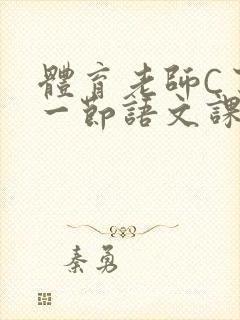 體育老師C
一節語文課
秦勇